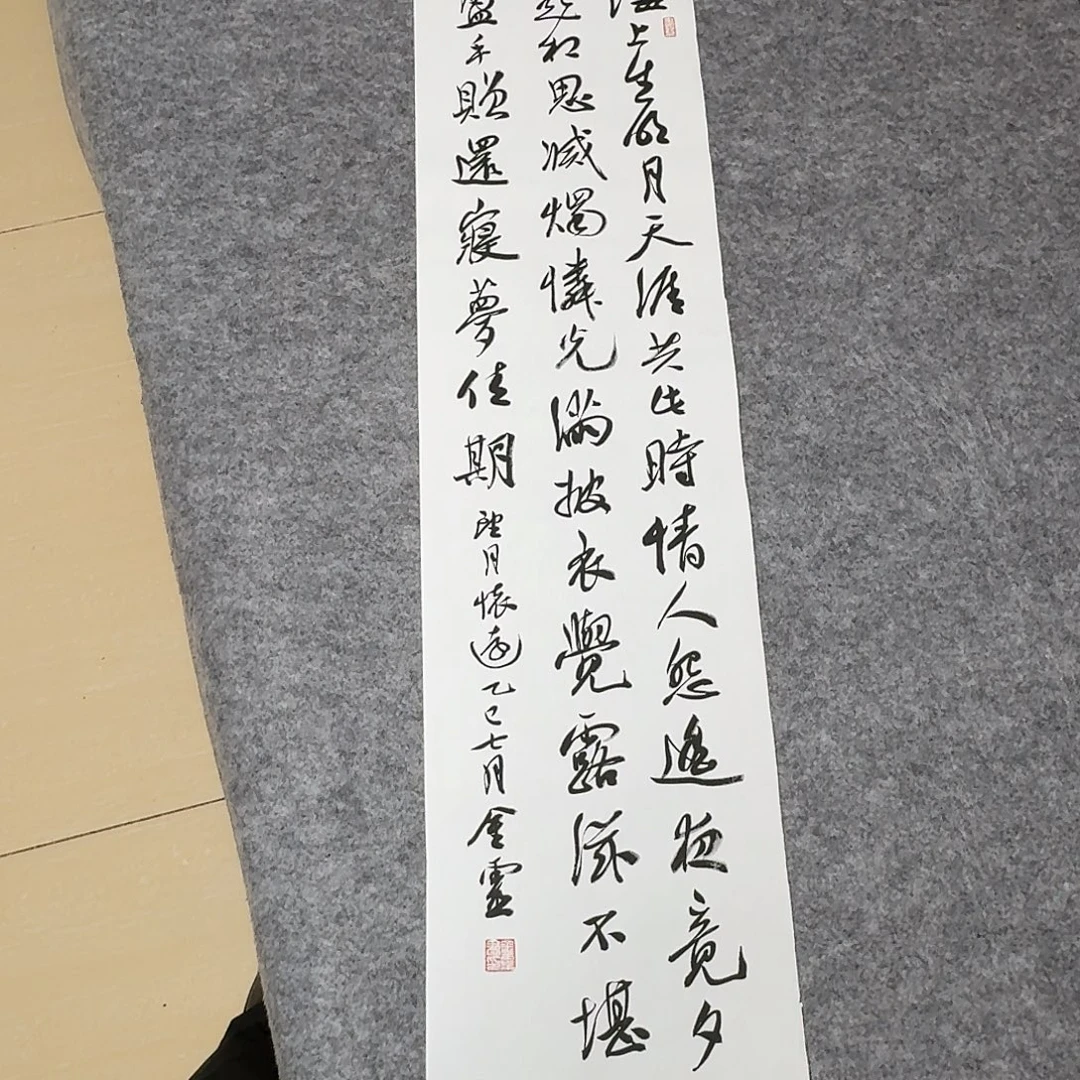 海上生明月天涯共此時情人怨遙夜竟夕
起相思滅燭憐光滿披衣覺露滋不堪
盈手贈還寢夢佳期 望月懷遠 乙巳七月 金靈